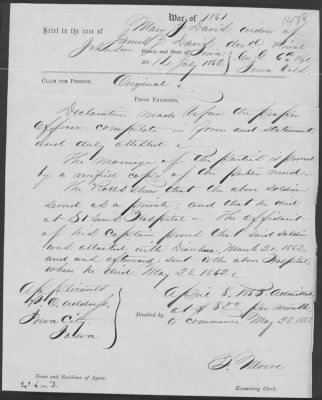 War of 1861
1478
Brief in the case of Mary J Davis widow of
James Davis decd Private
Johnson County and State of Iowa Co. G 6th Regt
Iowa Vols
July 1862
Claim for Pension. Original
Proof Exhibited.
Declaration made before the proper
officer complete in form and statement
and duly attested
The marriage of the parties is proved
by a verified copy of the public record
The Rolls shew that the above soldier
served as a private; and that he died
at St Louis Hospital - The affidavit
of his Captain proves that said soldier
was attacked with Diarrhea, March 20, 1862
and was afterward sent to the above Hospital,
where he died May 28. 1862
Applicants
P.O. address
Iowa City
Iowa
April 8, 1863 Admitted
at $8.00 per month
Disabled by
to commence May 28. 1862
Moore
Name and Residence of Agent.
Examining Clerk.